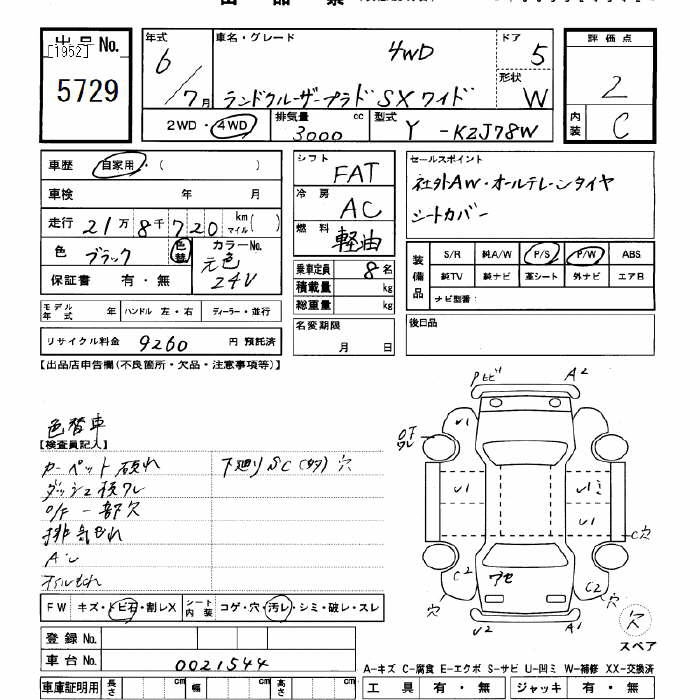 出品票
出品No.
[1952]
5729
年式 6/7月
車名・グレード 4WD
ランドクルーザープラド SX ワイド
ドア 5
形状 W
2WD・4WD
排気量 3000 cc
型式 Y-KZJ78W
評価点 2
内装 C
車歴 自家用・( )
車検 年 月
走行 21万8千720 kmマイル( )
色 ブラック 色替
カラーNo. 元色 24V
保証書 有・無
モデル年式 年 ハンドル 左・右 ディーラー・並行
リサイクル料金 9260 円 預託済
シフト FAT
冷房 AC
燃料 軽油
乗車定員 8名
積載量 kg
総重量 kg
名変期限 月 日
セールスポイント
社外AW・オールテレーンタイヤ
シートカバー
装備品
S/R 純A/W P/S P/W ABS
純TV 純ナビ 革シート 外ナビ エアB
ナビ型番:
後日品
【出品店申告欄(不良箇所・欠品・注意事項等)】
色替車
【検査員記入】
カーペット 下廻りSC(多) 穴
ダッシュ
O/F 一部欠
排気もれ
オイルもれ
FW キズ・トビ石・割レX シート内装 コゲ・穴・汚レ・シミ・破レ・スレ
登録No.
車台No. 0021544
車庫証明用 長さ cm 幅 cm 高さ cm
A2
O/F
U1
U1
U1
C穴
C2
C2
穴
穴
A1
穴
スペア
A-キズ C-腐食 E-エクボ S-サビ U-凹ミ W-補修 XX-交換済
工具 有・無 ジャッキ 有・無